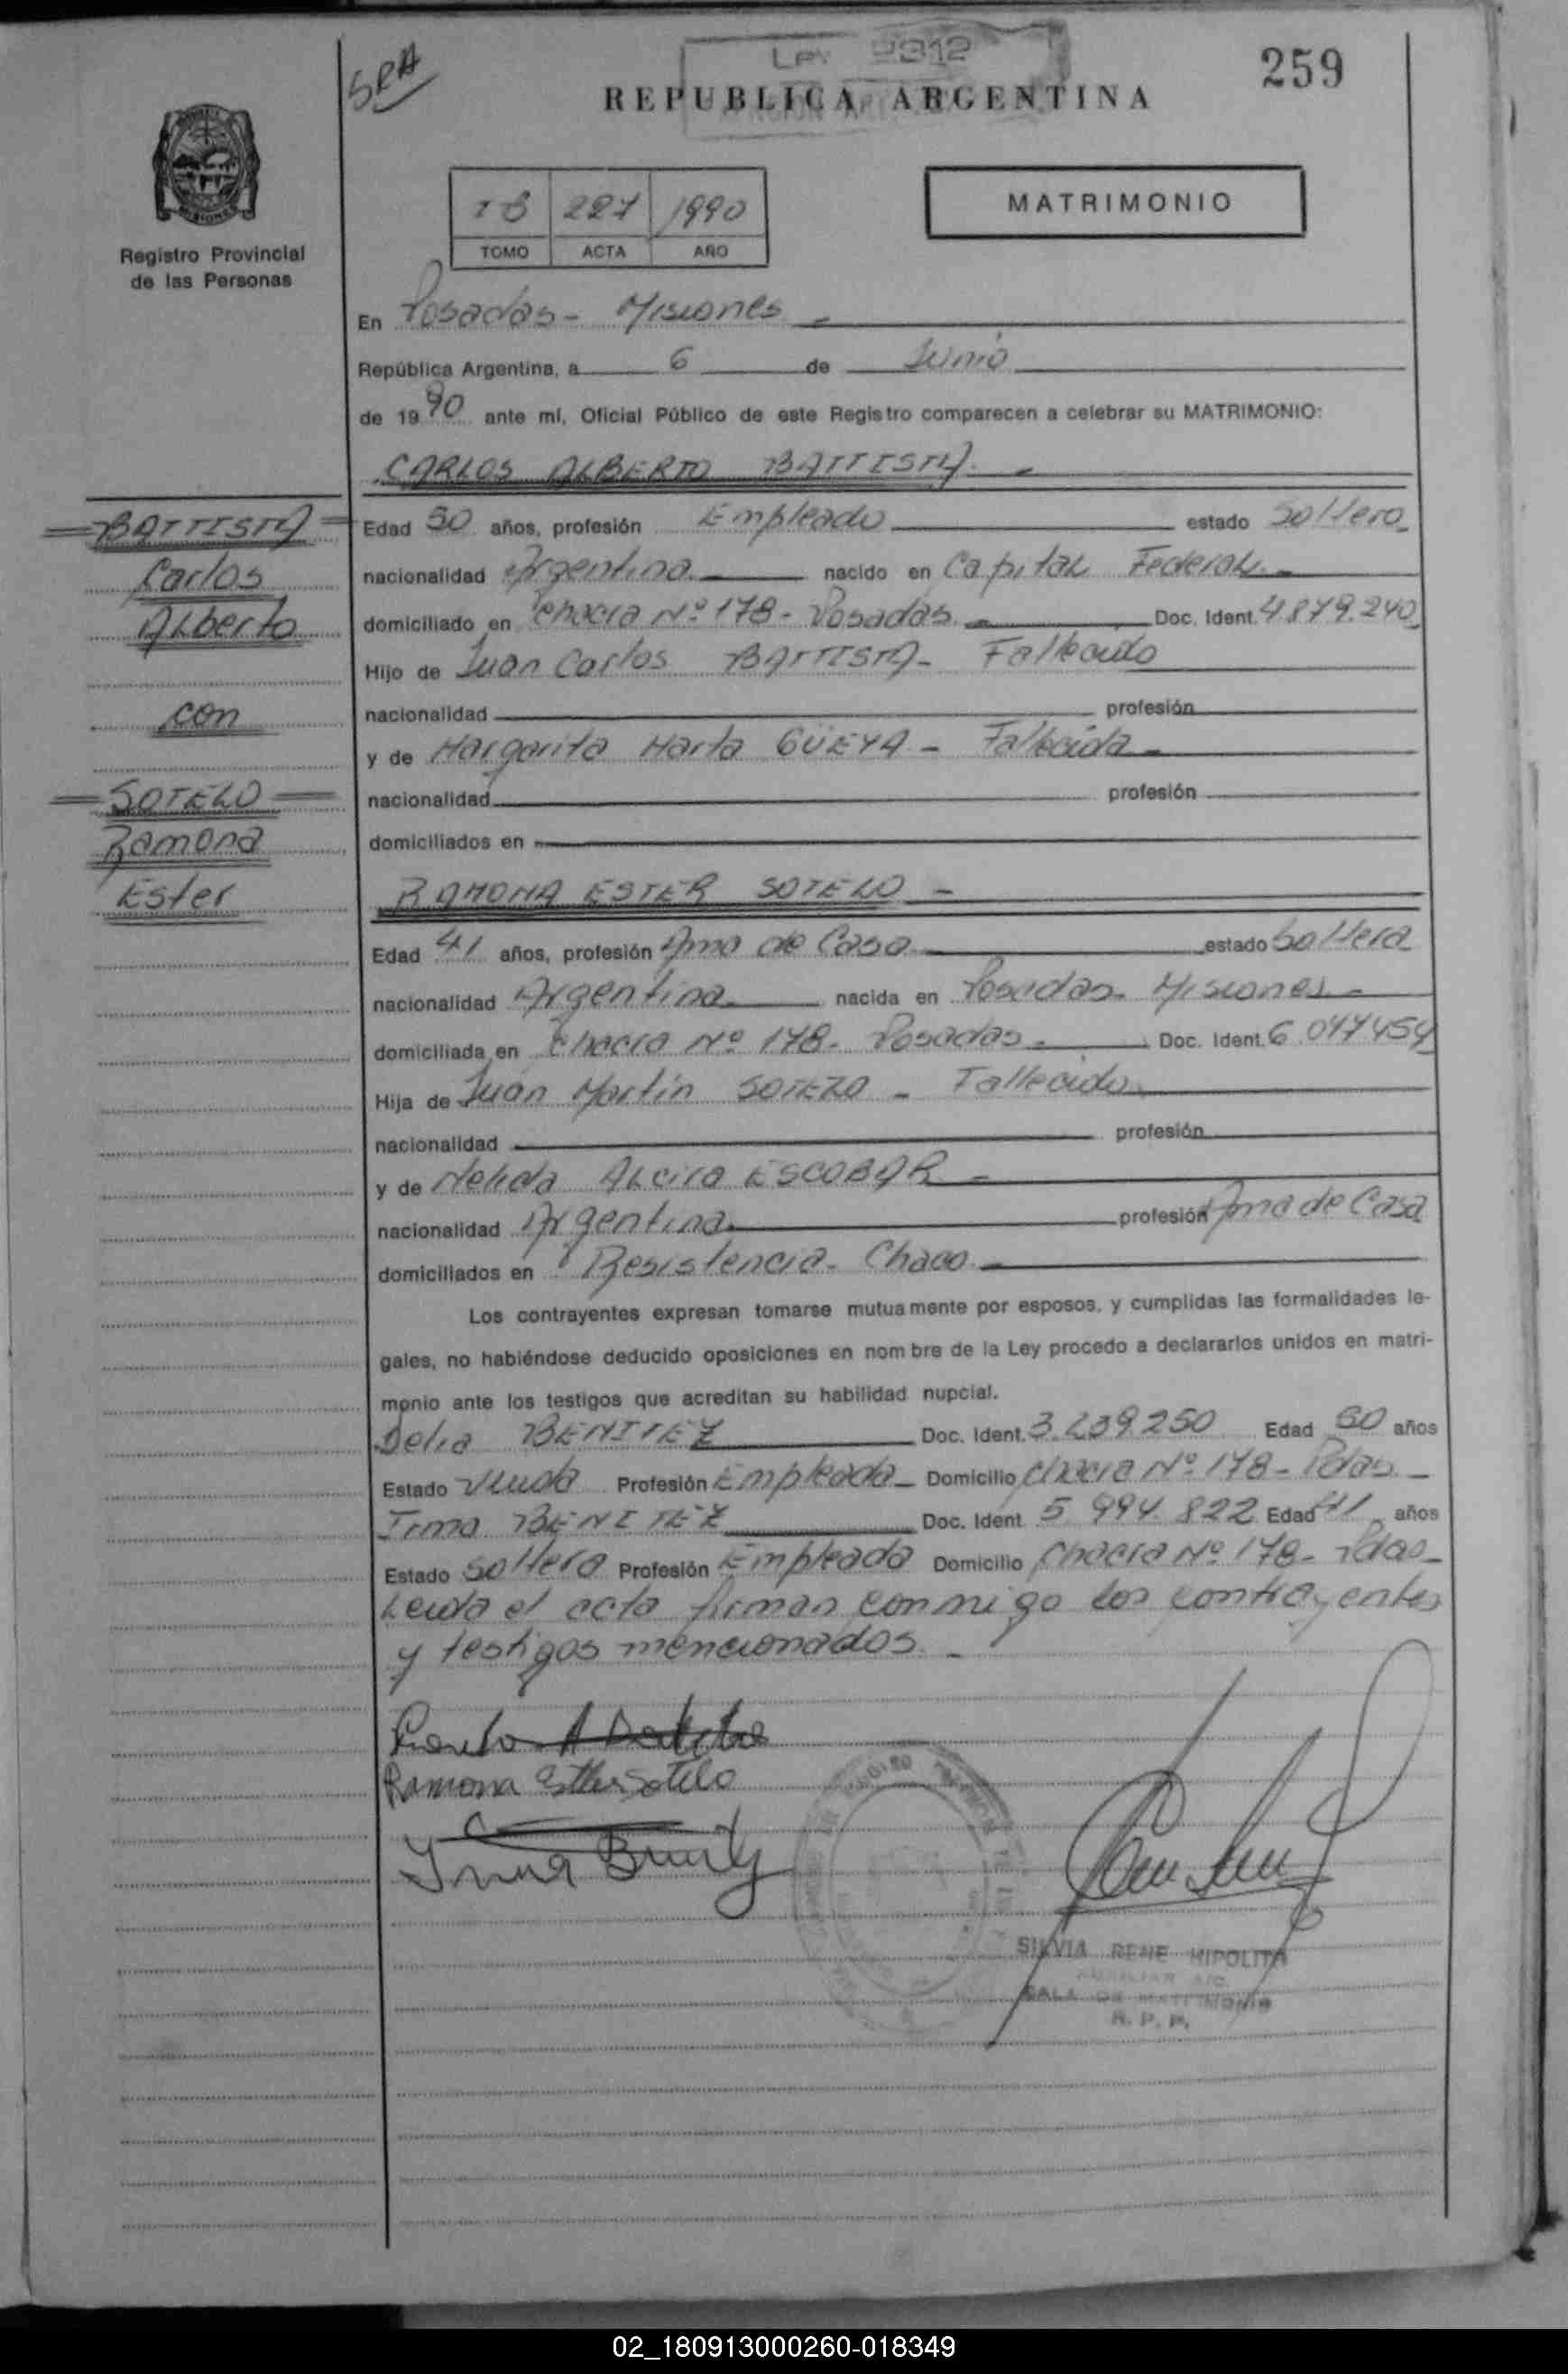 SRA
LEY 2312
259
REPUBLICA ARGENTINA
Registro Provincial
de las Personas
227 1990
TOMO ACTA AÑO
MATRIMONIO
En Posadas - Misiones -
República Argentina, a 6 de Junio
de 1990 ante mí, Oficial Público de este Registro comparecen a celebrar su MATRIMONIO:
CARLOS ALBERTO BATTISTA -
BATTISTA
Carlos
Alberto
con
SOTELO
Ramona
Ester
Edad 50 años, profesión Empleado estado Soltero
nacionalidad Argentina nacido en Capital Federal -
domiciliado en Chacra Nº 178 - Posadas Doc. Ident. 4.879.240
Hijo de Juan Carlos BATTISTA - Fallecido
nacionalidad profesión
y de Margarita Marta GÜEYA - Fallecida -
nacionalidad profesión
domiciliados en
RAMONA ESTER SOTELO -
Edad 41 años, profesión Ama de Casa estado Soltera
nacionalidad Argentina nacida en Posadas - Misiones -
domiciliada en Chacra Nº 178 - Posadas Doc. Ident. 6.047454
Hija de Juan Martin SOTELO - Fallecido
nacionalidad profesión
y de Nelida Alcira ESCOBAR -
nacionalidad Argentina profesión Ama de Casa
domiciliados en Resistencia - Chaco
Los contrayentes expresan tomarse mutuamente por esposos, y cumplidas las formalidades le-
gales, no habiéndose deducido oposiciones en nombre de la Ley procedo a declararlos unidos en matri-
monio ante los testigos que acreditan su habilidad nupcial.
Delia BENITEZ Doc. Ident. 3.239.250 Edad 50 años
Estado Viuda Profesión Empleada - Domicilio Chacra Nº 178 - Pdas -
Irma BENITEZ Doc. Ident 5.994.822 Edad 41 años
Estado Soltera Profesión Empleada Domicilio Chacra Nº 178 - Pdas -
Leida el acta firman conmigo los contrayentes
y testigos mencionados. -
Ramona Esther Sotelo
SILVIA RENE HIPOLITA
AUXILIAR
SALA DE MATRIMONIO
R. P. P.
02_180913000260-018349